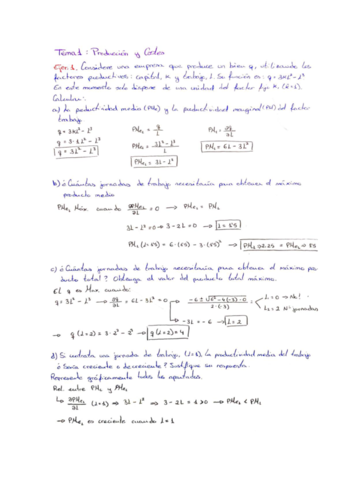 Tema 1: Producción y Costes
Ejer. 1. Considere una empresa que produce un bien q, utilizando los
factores productivos: capital, K y trabajo, L. Su función es: q = 3KL² - L³
En este momento solo dispone de una unidad del factor fijo K. (K=1).
Calcular:
a) La productividad media (PMe) y la productividad marginal (PM) del factor
trabajo
q = 3KL² - L³
q = 3·1·L² - L³
q = 3L² - L³
PMe_L = q/L
PMe_L = 3L² - L³/L
PMe_L = 3L - L²
PM_L = ∂q/∂L
PM_L = 6L - 3L²
b) ¿Cuántas jornadas de trabajo necesitaría para obtener el máximo
producto medio
PMe_L Máx cuando ∂PMe_L/∂L = 0 → PMe_L = PM_L
3L - L² = 0 → 3 - 2L = 0 → L = 1'5
c) ¿Cuántas jornadas de trabajo necesitaría para obtener el máximo pro
ducto total? Obtenga el valor del producto total máximo.
El q es Max cuando:
q = 3L² - L³ → ∂q/∂L = 6L - 3L² = 0
L = 0 → No!
L = 2
-3L = -6 → L = 2
→ q (L=2) = 3·2² - 2³ → q (L=2) = 4
d) Si contrata una jornada de trabajo, (L=1). La productividad media del trabajo
¿Será creciente o decreciente? Justifique su respuesta.
Represente gráficamente todos los apartados.
Rel. entre PM_L y PMe_L
↳ ∂PMe_L/∂L (L=1) ⇒ 3L - L² ⇒ 3 - 2L = 1 > 0 → PMe_L < PM_L
→ PMe_L es creciente cuando L = 1